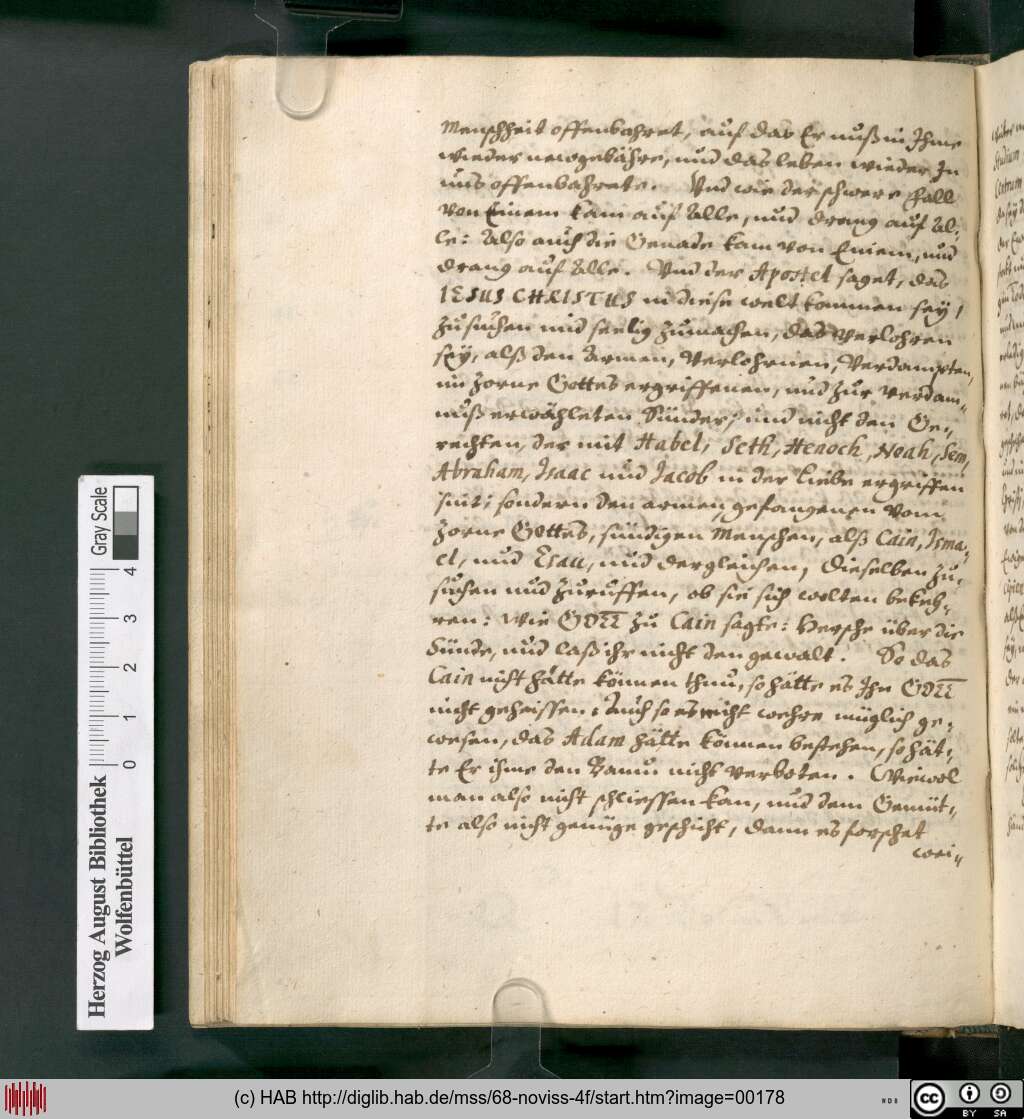 Menschheit offenbahret, auf das Er nuß in Ihme
wieder newgebähre, und das leben wieder In
uns offenbahrete. Und wie der schwere Fall
von Einem kam auf Alle, und drang auf Al-
le: Also auch die Genade kam von Einem, und
drang auf Alle. Und der Apostel saget, das
IESUS CHRISTUS in diese welt kommen sey,
zusuchen und seelig zumachen, das Verlohren
sey, alß den Armen, Verlohrnen, Verdampten,
im zorne Gottes ergriffenen, und zur verdam-
nuß erwöhleten Sünder, und nicht den Ge-
rechten, der mit Habel, Seth, Henoch, Noah, Sem,
Abraham, Isaac und Jacob in der liebe ergriffen
sint; sondern den armen gefangenen vom
zorne Gottes, sündigen Menschen, alß Cain, Isma-
el, und Esau, und dergleichen, dieselben zu-
suchen und zuruffen, ob sie sich wolten bekeh-
ren: Wie GOTT zu Cain sagte: Hersche über die
Sünde, und laß ihr nicht den gewalt. So das
Cain nicht hätte können thun, so hätte es Ihn GOTT
nicht geheissen: Auch so es nicht wehre müglich ge-
wesen, das Adam hätte können bestehen, so hät-
te Er ihme den Baum nicht verboten. Wiewol
man also nicht schliessen kan, und dem Gemüt-
te also nicht genüge geschicht, dann es forschet
wei-
Herzog August Bibliothek
Wolfenbüttel
Gray Scale
0 1 2 3 4
(c) HAB http://diglib.hab.de/mss/68-noviss-4f/start.htm?image=00178
cc BY SA